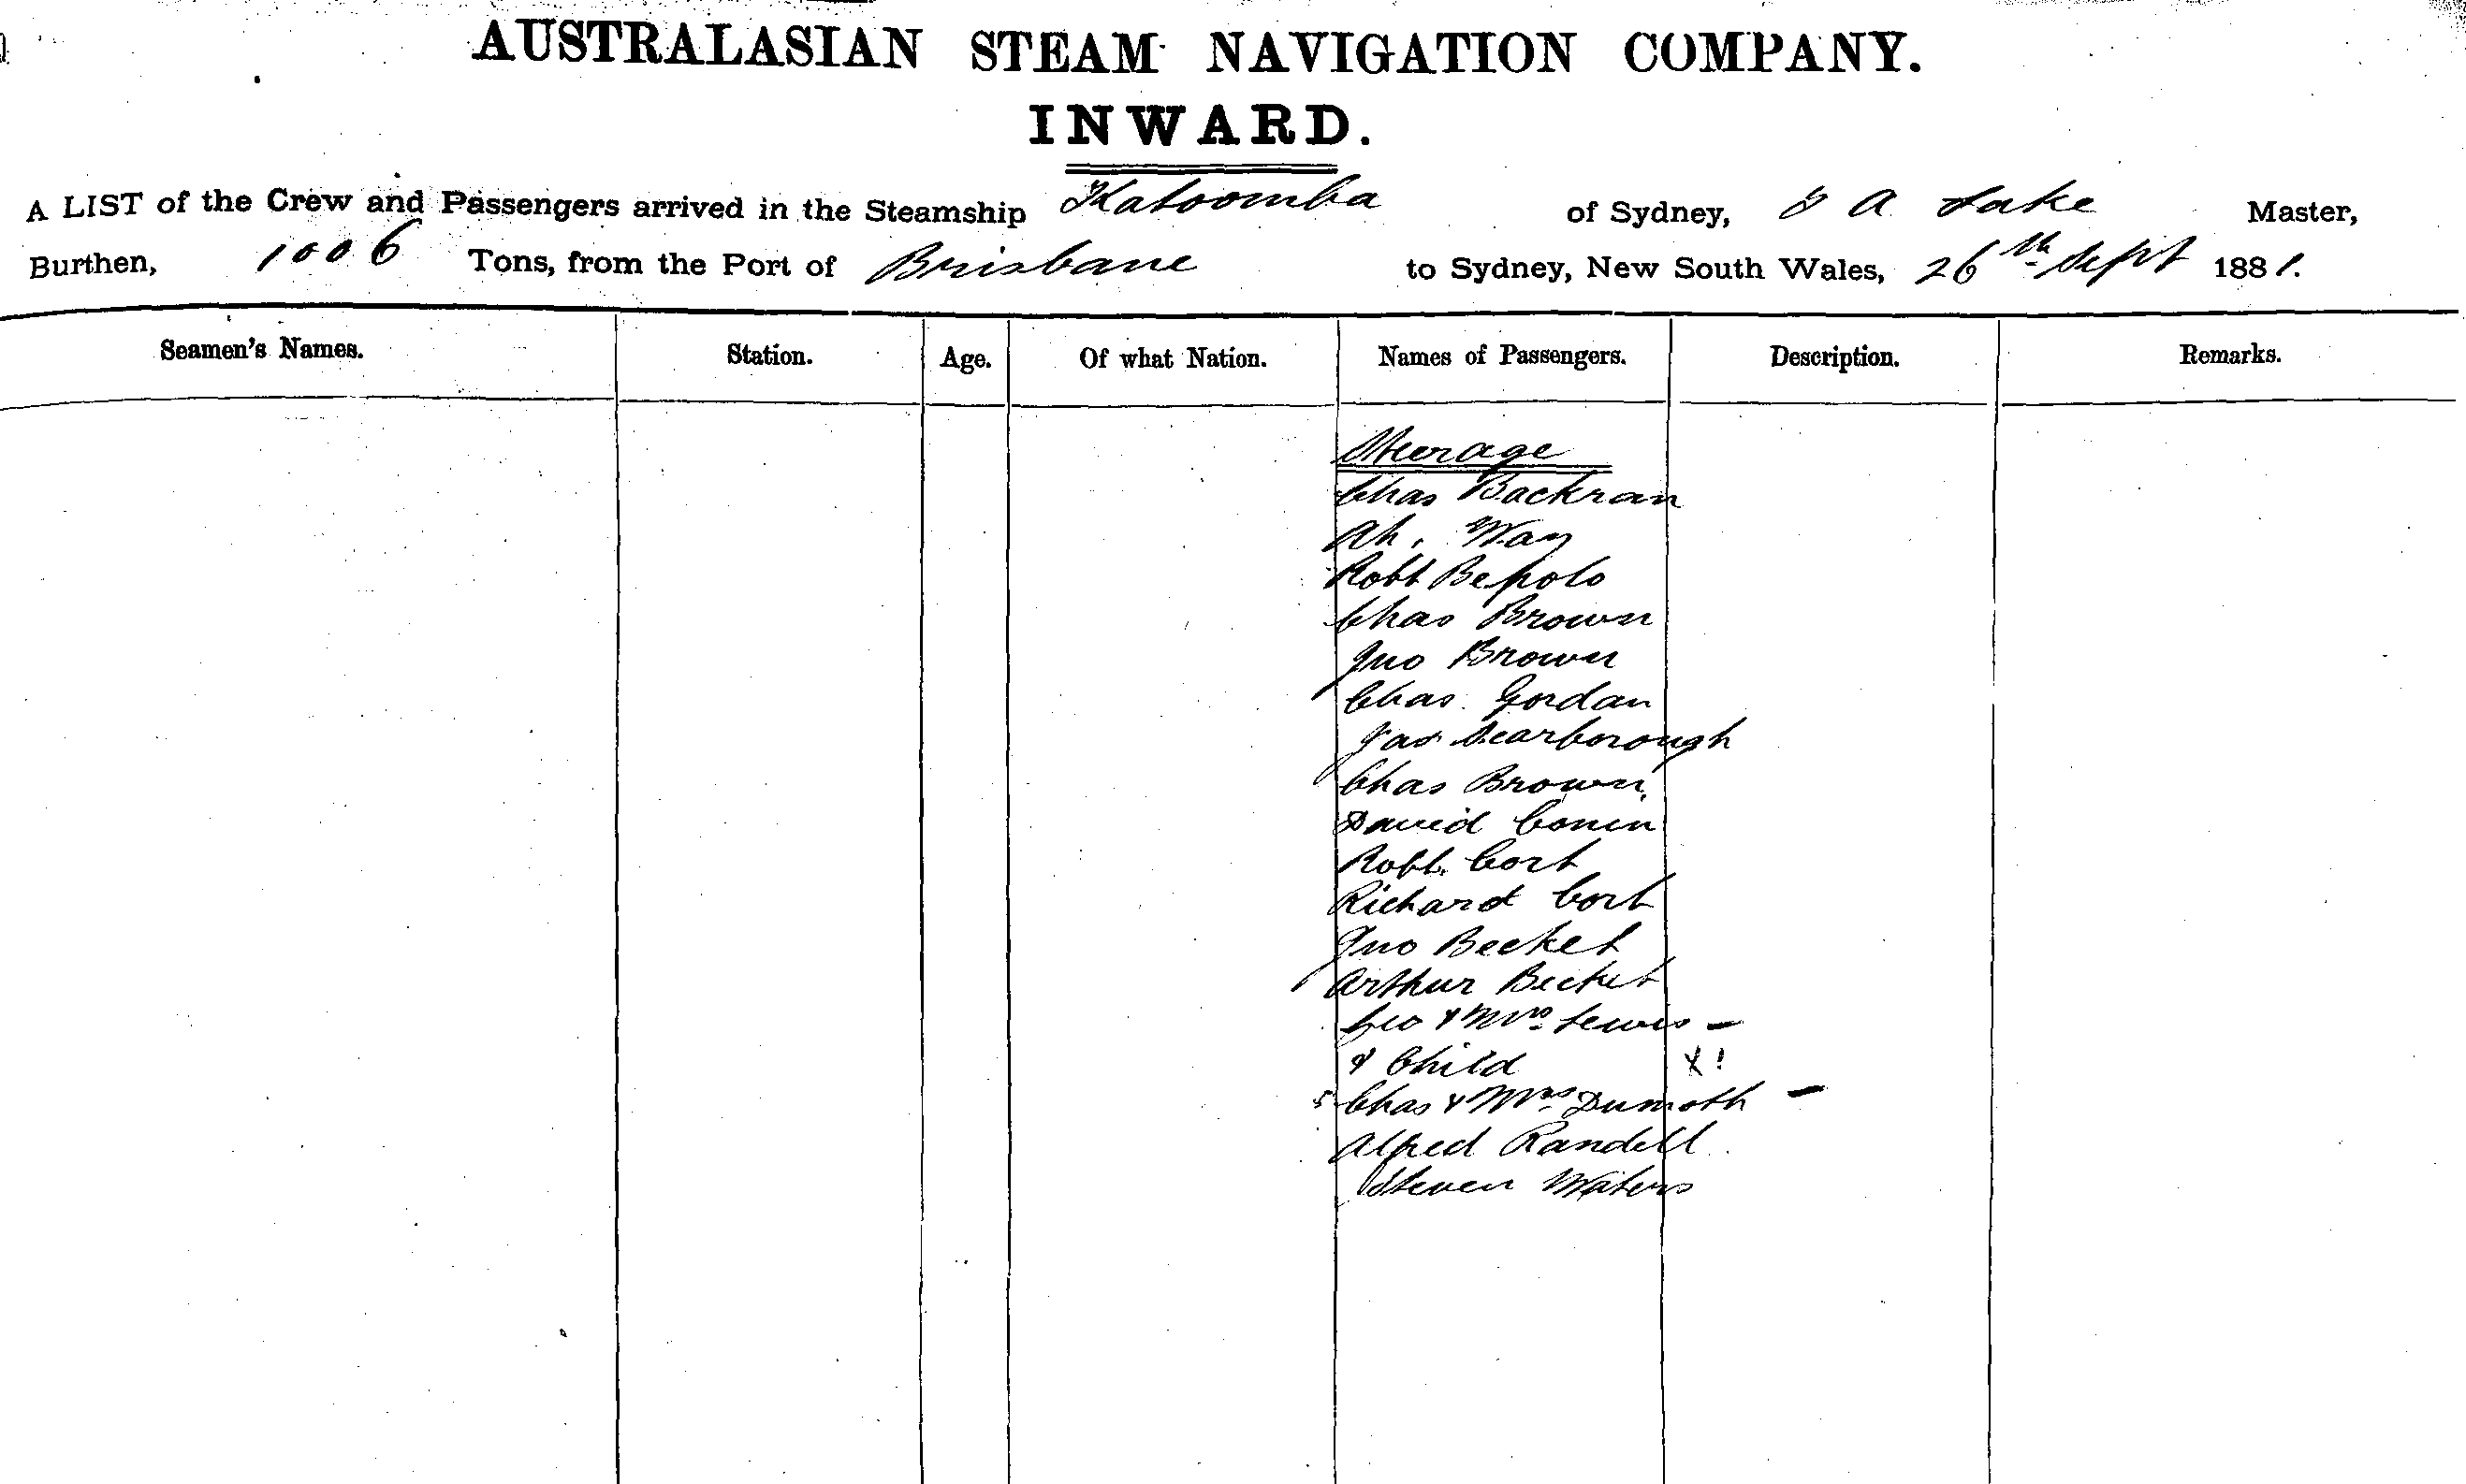 AUSTRALASIAN STEAM NAVIGATION COMPANY.
INWARD.
A LIST of the Crew and Passengers arrived in the Steamship Katoomba of Sydney, J A Lake Master,
Burthen, 1006 Tons, from the Port of Brisbane to Sydney, New South Wales, 26th Sept 1881.
Seamen's Names. Station. Age. Of what Nation. Names of Passengers. Description. Remarks.
Steerage
Chas Backran
Ah. Way
Robt Bepolo
Chas Brown
Jno Brown
Chas. Gordan
Jas Scarborough
Chas Brown
David Conin
Robt. Cort
Richard Cort
Jno Becket
Arthur Becket
Geo & Mrs Lewis —
& Child X!
Chas & Mrs Dumoth —
Alfred Randell
Steven Waters